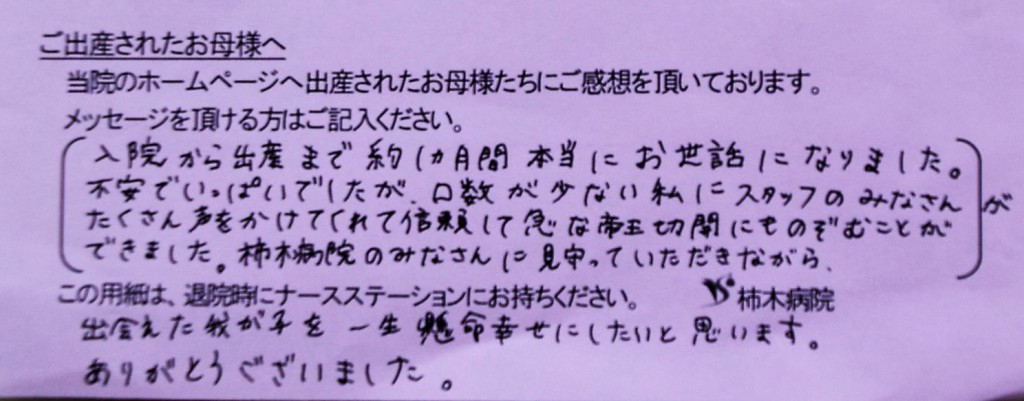 ご出産されたお母様へ
当院のホームページへ出産されたお母様たちにご感想を頂いております。
メッセージを頂ける方はご記入ください。
入院から出産まで約1カ月間本当にお世話になりました。
不安でいっぱいでしたが、口数が少ない私にスタッフのみなさんが
たくさん声をかけてくれて信頼して急な帝王切開にものぞむことが
できました。柿木病院のみなさんに見守っていただきながら、
この用紙は、退院時にナースステーションにお持ちください。 柿木病院
出会えた我が子を一生懸命幸せにしたいと思います。
ありがとうございました。